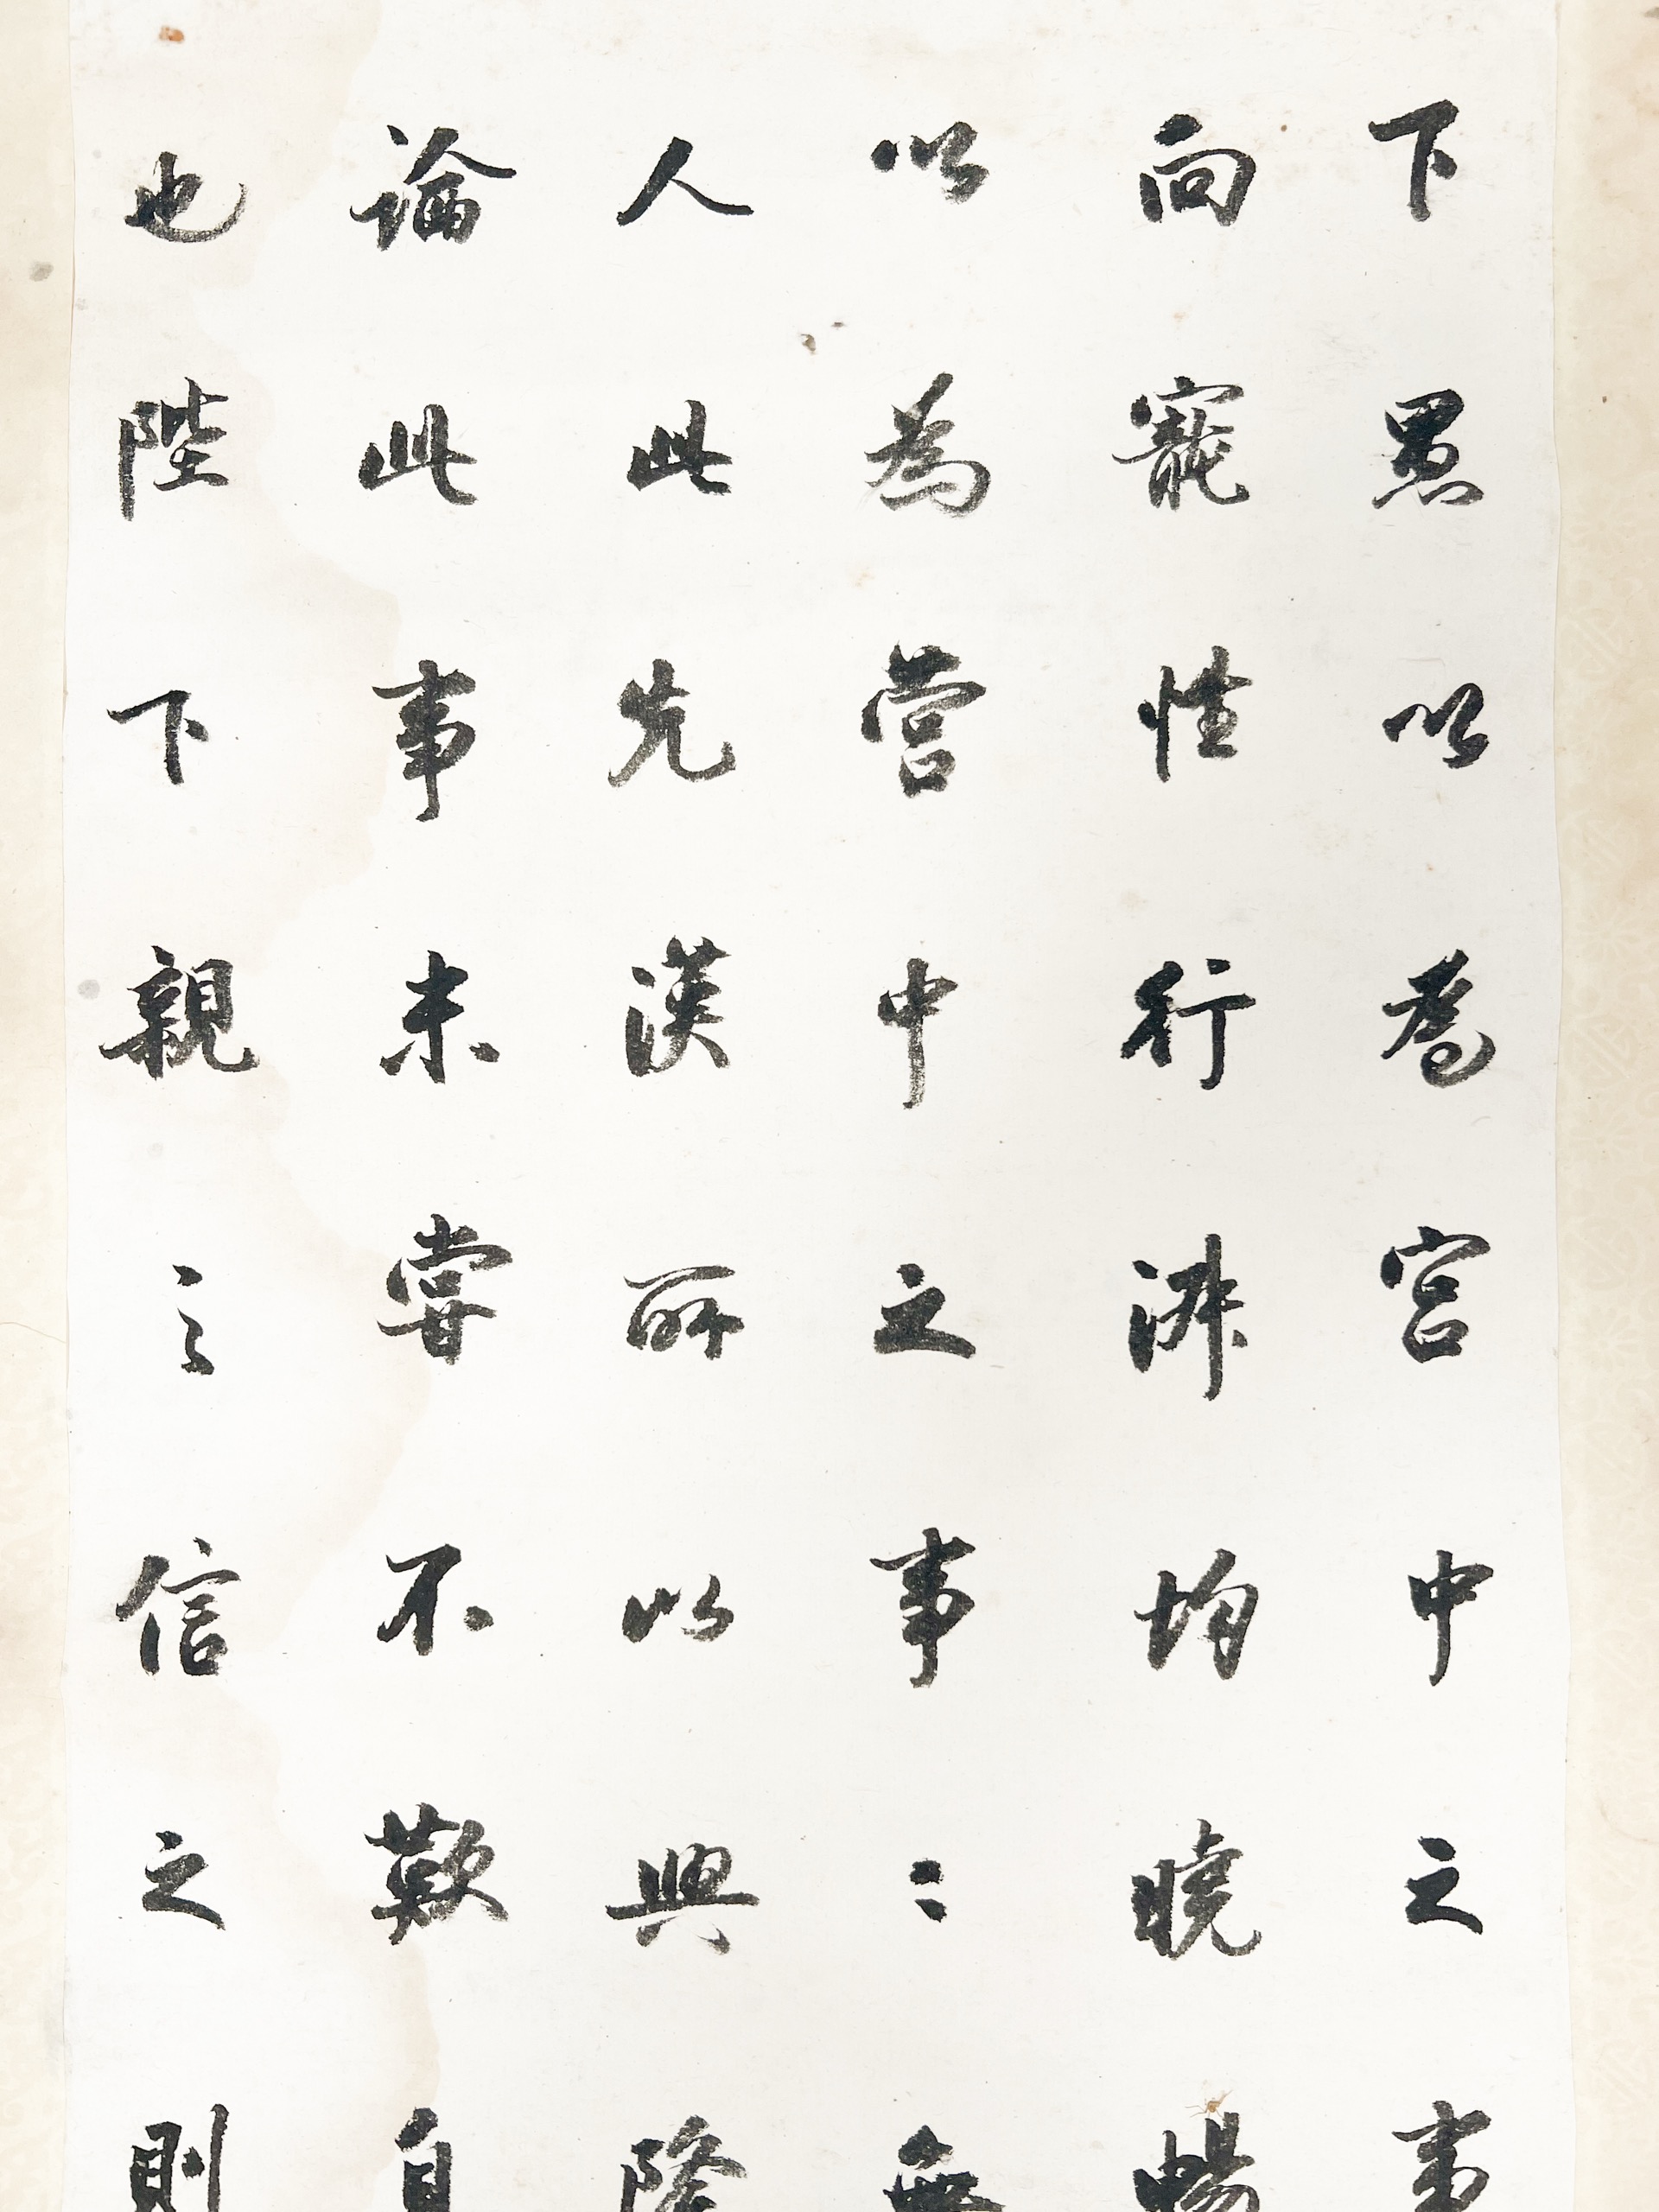 下愚以為宮中之事
向寵性行淑均曉暢
以為營中之事〻無
人此先漢所以興隆
論此事未嘗不歎自
也陛下親之信之則